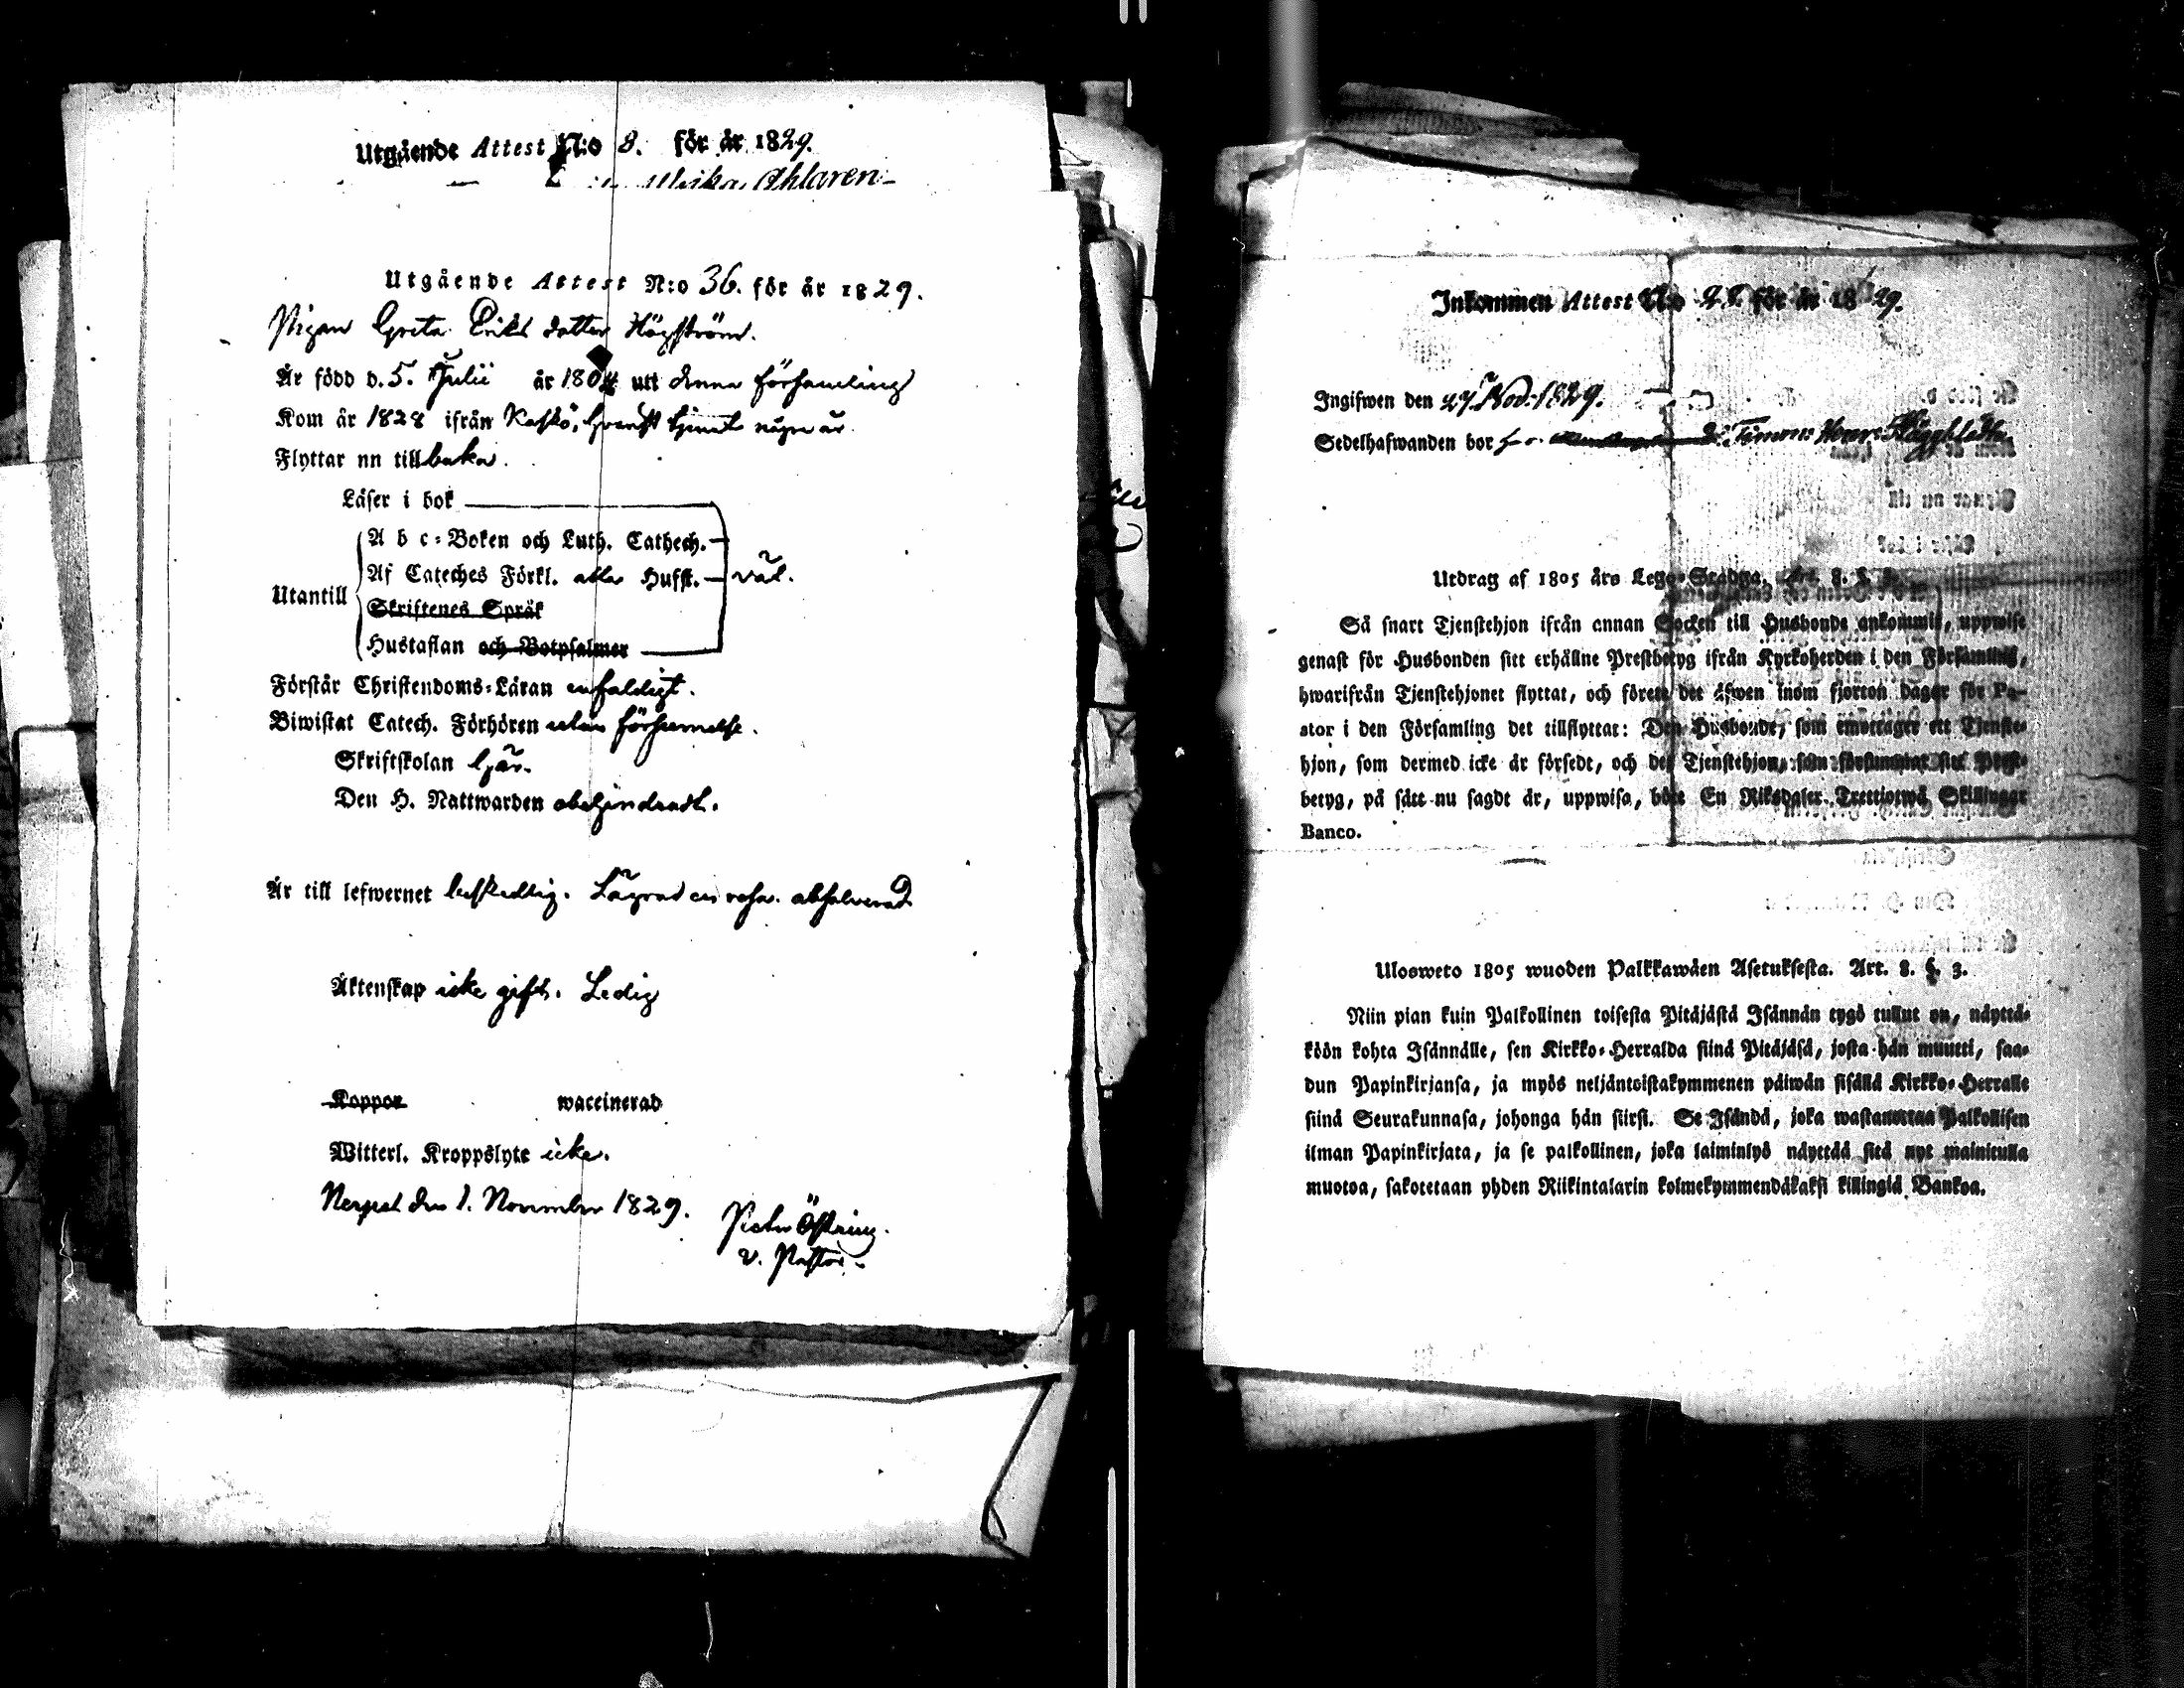 Utgående Attest N:o 8. för år 1829.
Ulrika Ahlaren
Utgående Attest N:o 36. för år 1829.
Pigan Greta Eriks dotter Högström.
Är född d. 5. Julii år 1804 uti denna församling
Kom år 1828 ifrån Kaskö,
Flyttar nu tillbaka.
Läser i bok
A b c-Boken och Luth. Cathech.
Af Cateches Förkl. alla Husst. väl.
Utantill
Skriftenes Språk
Hustaflan och Botpsalmer
Förstår Christendoms-Läran enfaldigt.
Biwistat Catech. Förhören utan försummelse.
Skriftskolan här.
Den H. Nattwarden obehindradt.
Är till lefwernet beskedlig. Lägrad en resa. absolverad
Äktenskap icke gift. Ledig
Koppor waccinerad
Witterl. Kroppslyte icke.
Nerpes den 1. November 1829.
Petr Östring.
v. Pastor.
Inkommen Attest N:o för år 1829.
Ingifwen den 27 Nov. 1829.
Sedelhafwanden bor
Utdrag af 1805 års Lego-Stadga. Art. 8. §. 3.
Så snart Tjenstehjon ifrån annan Socken till Husbonde ankommit, uppwise
genast för Husbonden sitt erhållne Prestbetyg ifrån Kyrkoherden i den Församling,
hwarifrån Tjenstehjonet flyttat, och förete det äfwen inom fjorton dagar för Pa-
stor i den Församling det tillflyttat: Den Husbonde, som emottager ett Tjenste-
hjon, som dermed icke är försedt, och det Tjenstehjon, som försummat sitt Prest-
betyg, på sätt nu sagdt är, uppwisa, böte En Riksdaler Trettiotwå Skillingar
Banco.
Ulosweto 1805 wuoden Palkkawäen Asetuksesta. Art. 8. §. 3.
Niin pian kuin Palkollinen toisesta Pitäjästä Isännän tygö tullut on, näyttä-
köön kohta Isännälle, sen Kirkko-Herralda siinä Pitäjäsä, josta hän muutti, saa-
dun Papinkirjansa, ja myös neljäntoistakymmenen päiwän sisällä Kirkko-Herralle
siinä Seurakunnasa, johonga hän siirsi. Se Isändä, joka wastanottaa Palkollisen
ilman Papinkirjata, ja se palkollinen, joka laiminlyö näyttää sitä nyt mainitulla
muotoa, sakotetaan yhden Riikintalarin kolmekymmendäkaksi killingiä Bankoa.